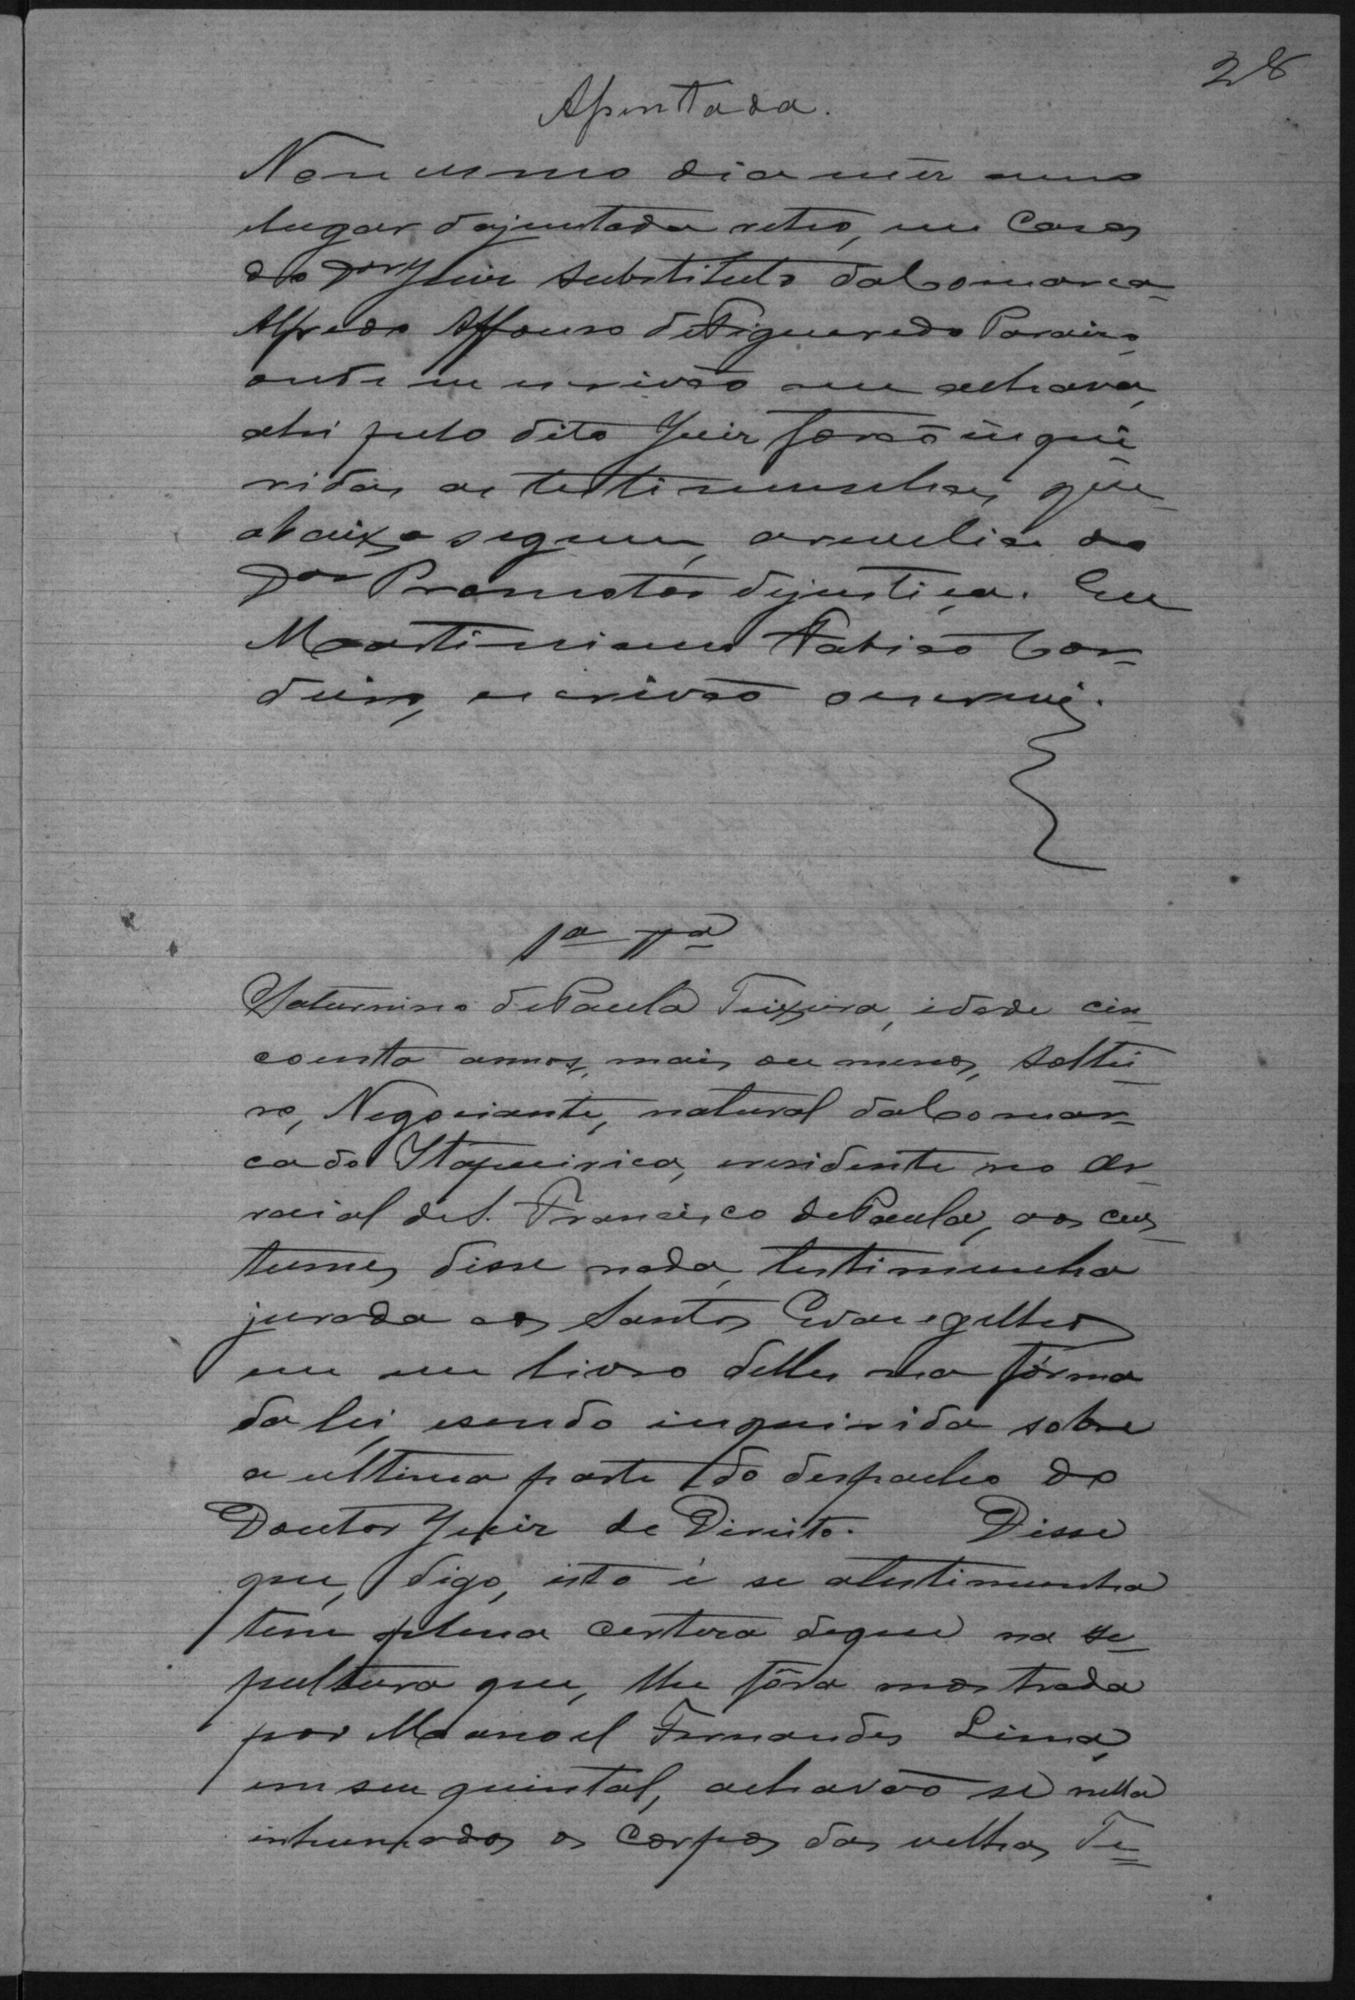 28
Assentada.
No mesmo dia mez anno
lugar dajuntada retro, em Casa
do Dor Juiz substituto da Comarca
Alfredo Affonso de Figueredo Paraizo,
onde eu escrivão me achava,
ahi pelo dito Juiz forão inqui-
ridas as testimunhas que
abaixo seguem, arevelia do
Dor Promotor dejustiça. Eu
Martiniano Fabião Cor-
deiro, escrivão o escrevi.
1a Ta
Saturnino de Paula Teixeira, idade cin-
coenta annos, mais ou menos, soltei-
ro, Negociante, natural da Comar-
ca do Itapecirica, eresidente no Ar-
raial de S. Francisco de Paula, aos cus-
tumes disse nada, testimunha
jurada aos Santos Evangelhos
em um livro delles na fórma
da lei, esendo inquirida sobre
a ultima parte do despacho do
Doutor Juiz de Direito. Disse
que, digo, isto é se atestimunha
tem plena certeza deque na se-
pultura que, lhe fôra mostrada
por Manoel Fernandes Lima,
em seu quintal, achavão se nella
inhumados os corpos das velhas Te-